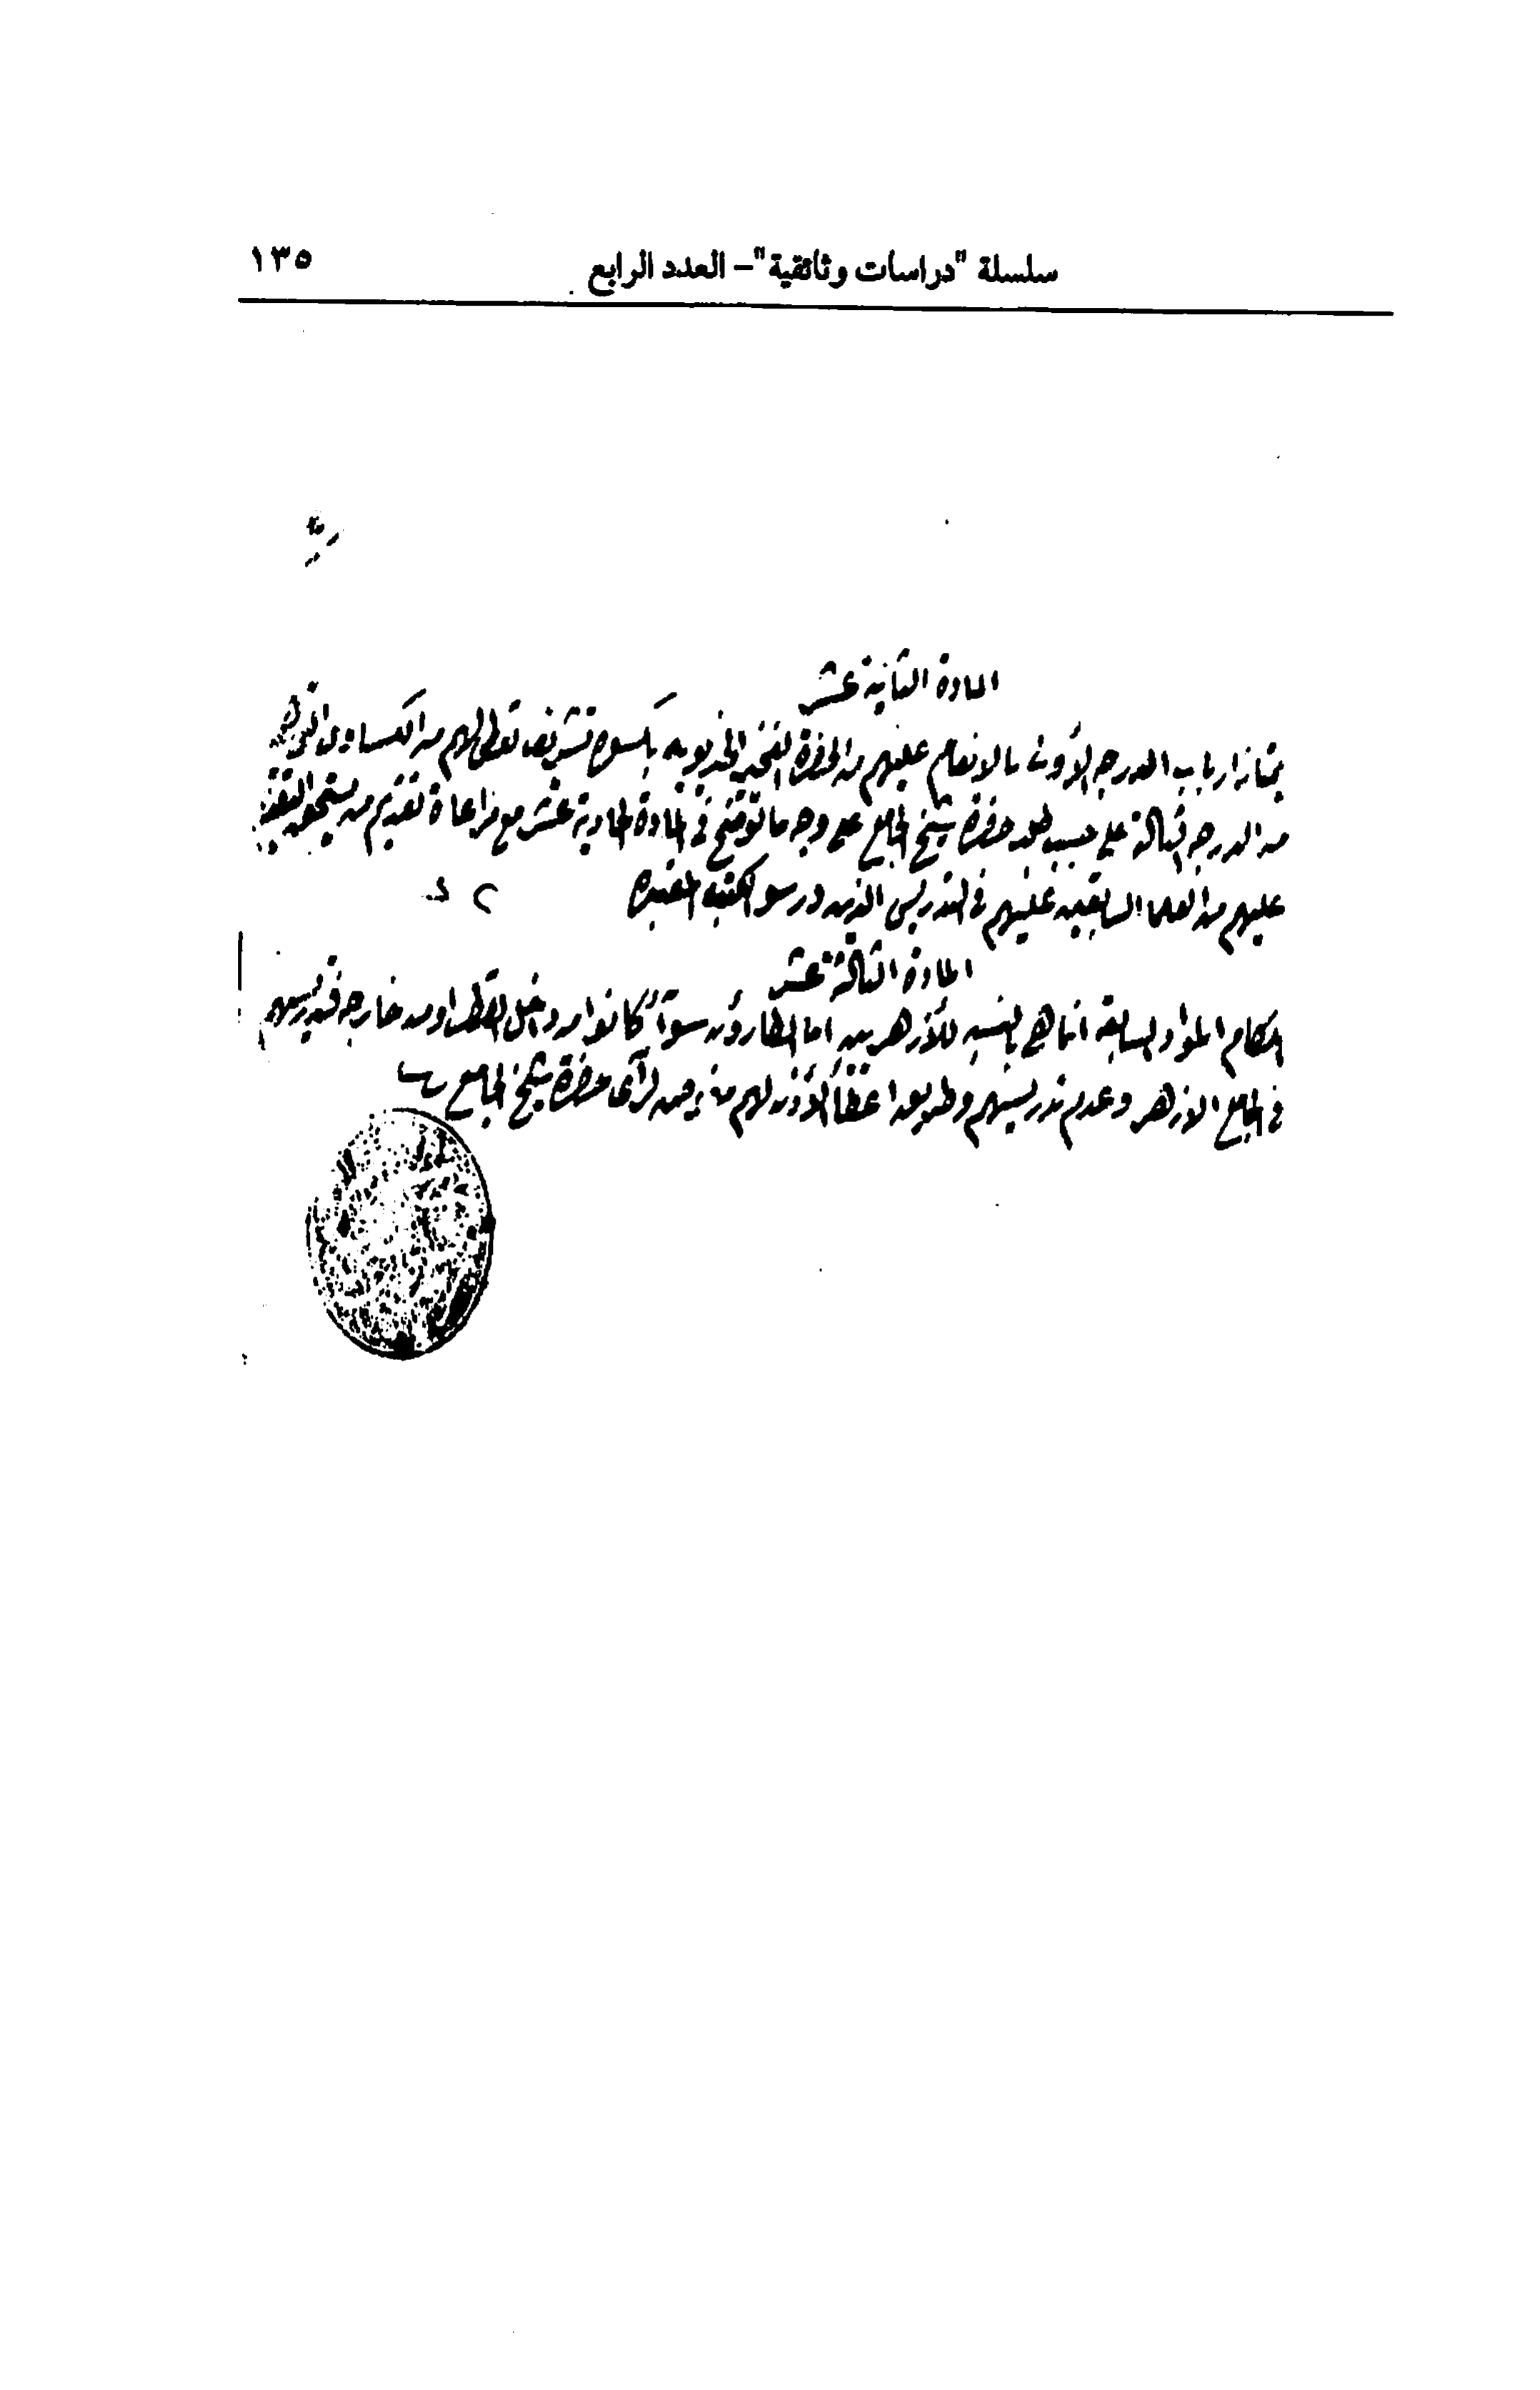 سلسلة "دراسات وثائقية"- العدد الرابع ١٣٥
المادة الثانية عشر
يمتاز ارباب الدرجه الأولى بالانعام عليهم من الحضرة الفخيمه الخديويه بكسوة تشريف تعطى لهم من الكساوى
من الدرجه الثالثة على حسب طلب حضرة شيخ الجامع على وجه ما توضح فى المادة الحادية عشر مع مراعاة تقديم من يستحق التقديم
عليهم من العلما السابقين عليهم فى التدريس الذين درسوا الكتب المعتبرة
المادة الثالثة عشر
احكام المواد السابقة انما هى بالنسبه للأزهريين اما الطارؤن سوآء كانوا من داخل القطر او من خارجه فتدريسهم
فى الجامع الازهر وعدم تدريسهم وطريق اعطآ الأذن لهم مفوض لرآى حضرة شيخ الجامع